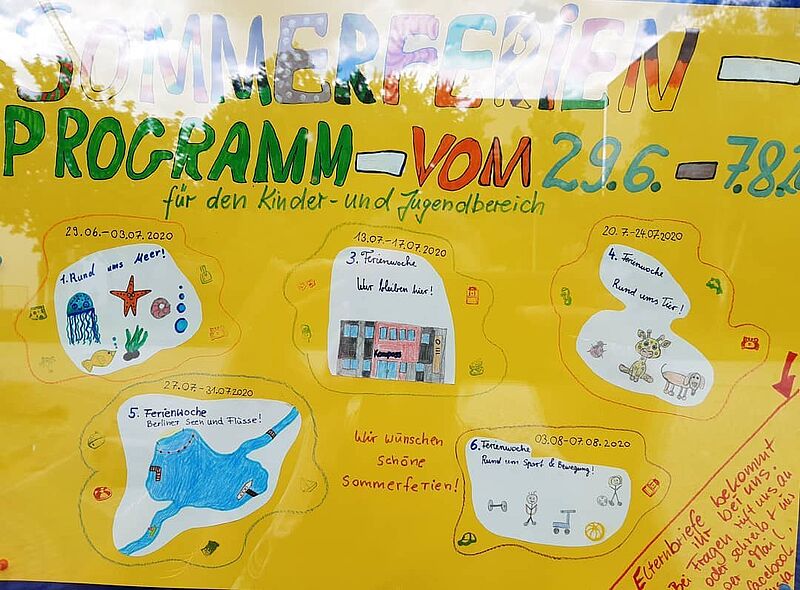 SOMMERFERIEN-
PROGRAMM-VOM 29.6.-7.8.2
für den Kinder- und Jugendbereich
29.06.-03.07.2020
1. Rund ums Meer!
13.07.-17.07.2020
3. Ferienwoche
Wir bleiben hier!
Kompass
20.7.-24.07.2020
4. Ferienwoche
Rund ums Tier!
27.07-31.07.2020
5. Ferienwoche
Berliner Seen und Flüsse!
Wir wünschen
schöne
Sommerferien!
03.08-07.08.2020
6. Ferienwoche
Rund um Sport & Bewegung!
Elternbriefe bekommt
ihr bei uns.
Bei Fragen ruft uns an
oder schreibt uns
per eMail
facebook